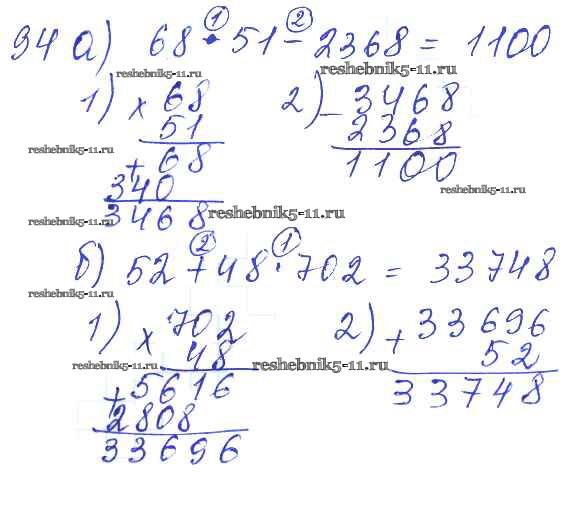 94 а) 68 · 51 − 2368 = 1100
① ②
reshebnik5-11.ru reshebnik5-11.ru
1) × 68 2) − 3468
51 2368
reshebnik5-11.ru
+ 68 1100
340 reshebnik5-11.ru
3468
reshebnik5-11.ru reshebnik5-11.ru
② ①
б) 52 + 48 · 702 = 33748
reshebnik5-11.ru
1) × 702 2) + 33696
48 52
reshebnik5-11.ru reshebnik5-11.ru
+ 5616 33748
2808
33696